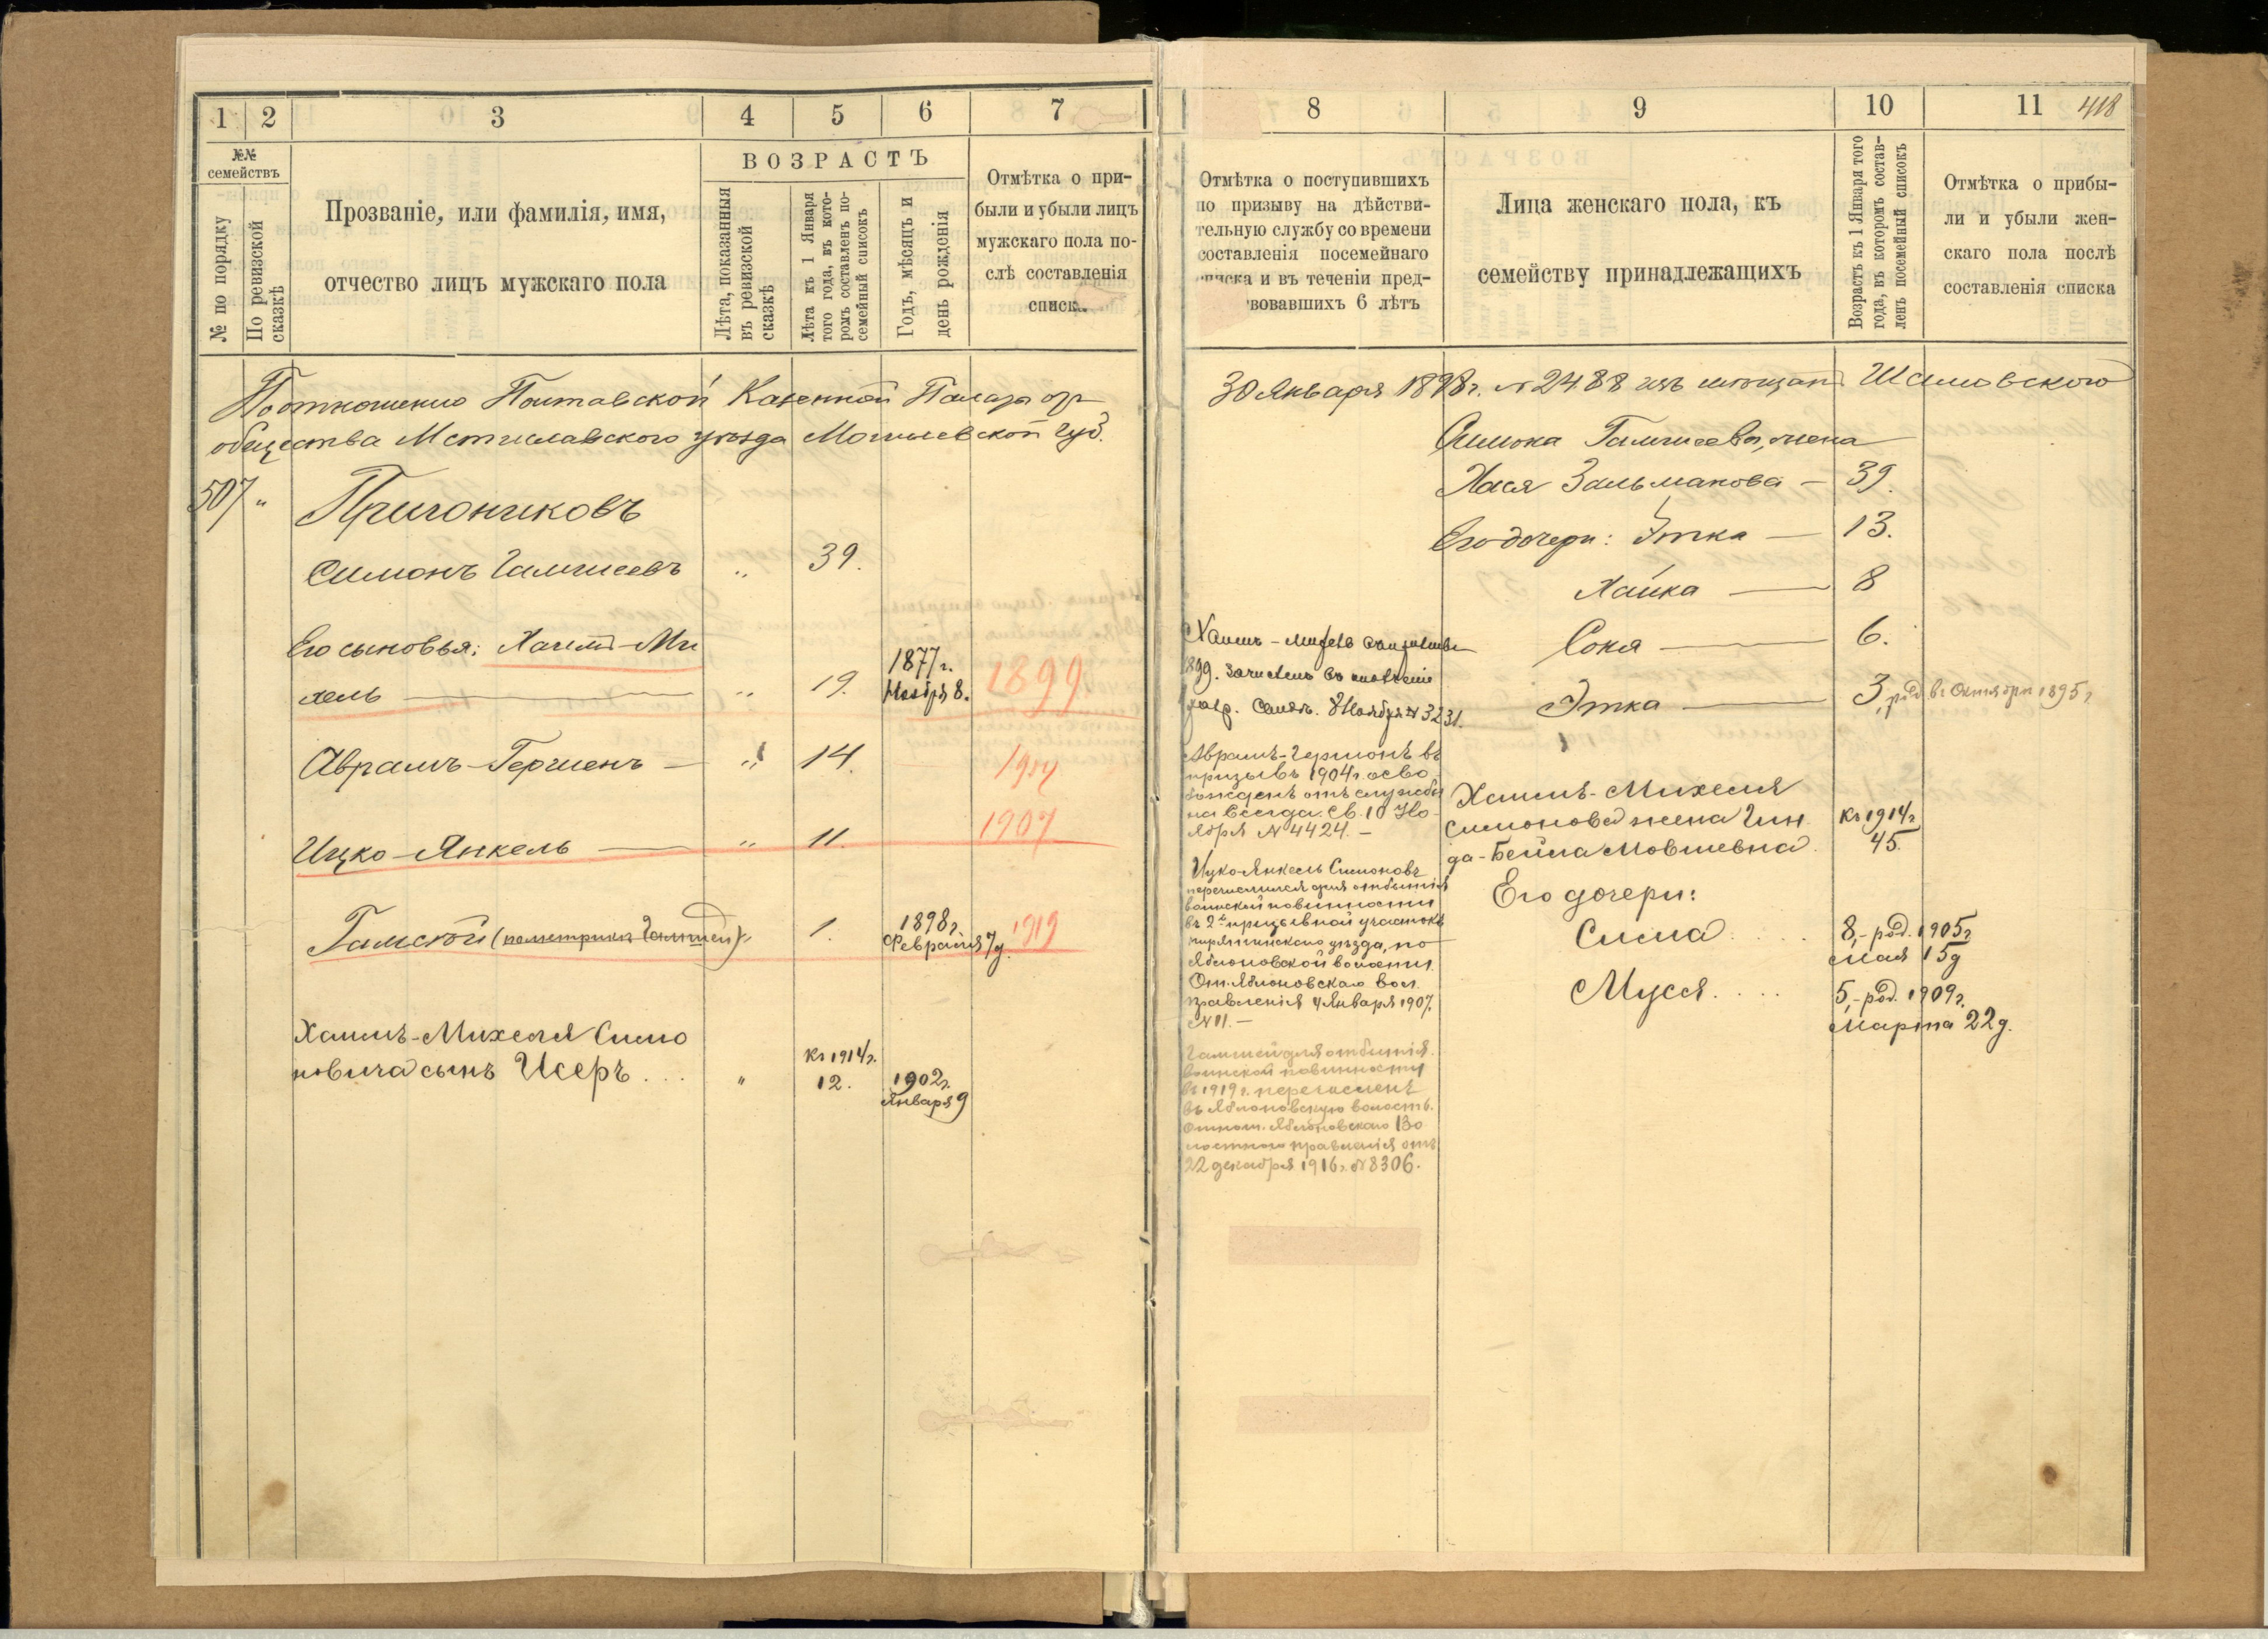 1 2 3 4 5 6 7
№№ семействъ
№ по порядку
По ревизской сказкѣ
Прозваніе, или фамилія, имя,
отчество лицъ мужскаго пола
ВОЗРАСТЪ
Лѣта, показанныя
въ ревизской
сказкѣ
Лѣта къ 1 Января
того года, въ кото-
ромъ составленъ по-
семейный списокъ
Годъ, мѣсяцъ и
день рожденія
Отмѣтка о при-
были и убыли лицъ
мужскаго пола по-
слѣ составленія
списка.
По отношенію Полтавской Казенной Палаты отъ
общества Мстиславскаго уѣзда Могилевской губ.
507 "
Пригониковъ
Симонъ Гамшеевъ " 39.
Его сыновья: Хаимъ-Ми
хель " 19. 1877 г.
Ноября 8. 1899
Абрамъ-Гершенъ " 14. 1904
Ицко-Янкель " 11. 1907
Гамшей " 1. 1898 г.
Февраля 7 д. 1919
Хаимъ-Михеля Симо
новича сынъ Исеръ . . . " Къ 1914 г.
12. 1902 г.
Января 9
8 9 10 11 418
Отмѣтка о поступившихъ
по призыву на дѣйстви-
тельную службу со времени
составленія посемейнаго
списка и въ теченіи пред-
вовавшихъ 6 лѣтъ
Лица женскаго пола, къ
семейству принадлежащихъ
Возрастъ къ 1 Января того
года, въ которомъ состав-
ленъ посемейный списокъ
Отмѣтка о прибы-
ли и убыли жен-
скаго пола послѣ
составленія списка
30 Января 1898 г. № 2488 изъ мѣщанъ Шамовского
Симона Гамшеева, жена
Хася Зальманова — 39.
Его дочери: Этка — 13.
Хайка — 8
Соня — 6.
Этка — 3, род. въ Октябрѣ 1895 г.
Хаимъ-Михель
1899. зачисленъ въ ополченіе
8 Ноября № 3231.
Абрамъ-Гершонъ въ
призывъ 1904 г. осво
божденъ отъ службы
навсегда. Св. 10 Но-
ября № 4424. —
Ицко-Янкель Симоновъ
перечислился для отбытія
воинской повинности
въ 2й призывной участокъ
Пирятинскаго уѣзда, по
Яблоновской волости.
От. Яблоновскаго вол.
правленія 4 Января 1907.
№ 11. —
Гамшей для отбытія
воинской повинности
въ 1919 г. перечисленъ
въ Яблоновскую волость.
Отнош. Яблоновскаго Во
лостного правленія отъ
22 декабря 1916 г. № 8306.
Хаимъ-Михеля
Симонова жена Гин
да-Бейла Мовшевна. Къ 1914 г.
45.
Его дочери:
Сима . . . . 8,- род. 1905 г.
Мая 15 д
Муся . . . . 5,- род. 1909 г.
Марта 22 д.